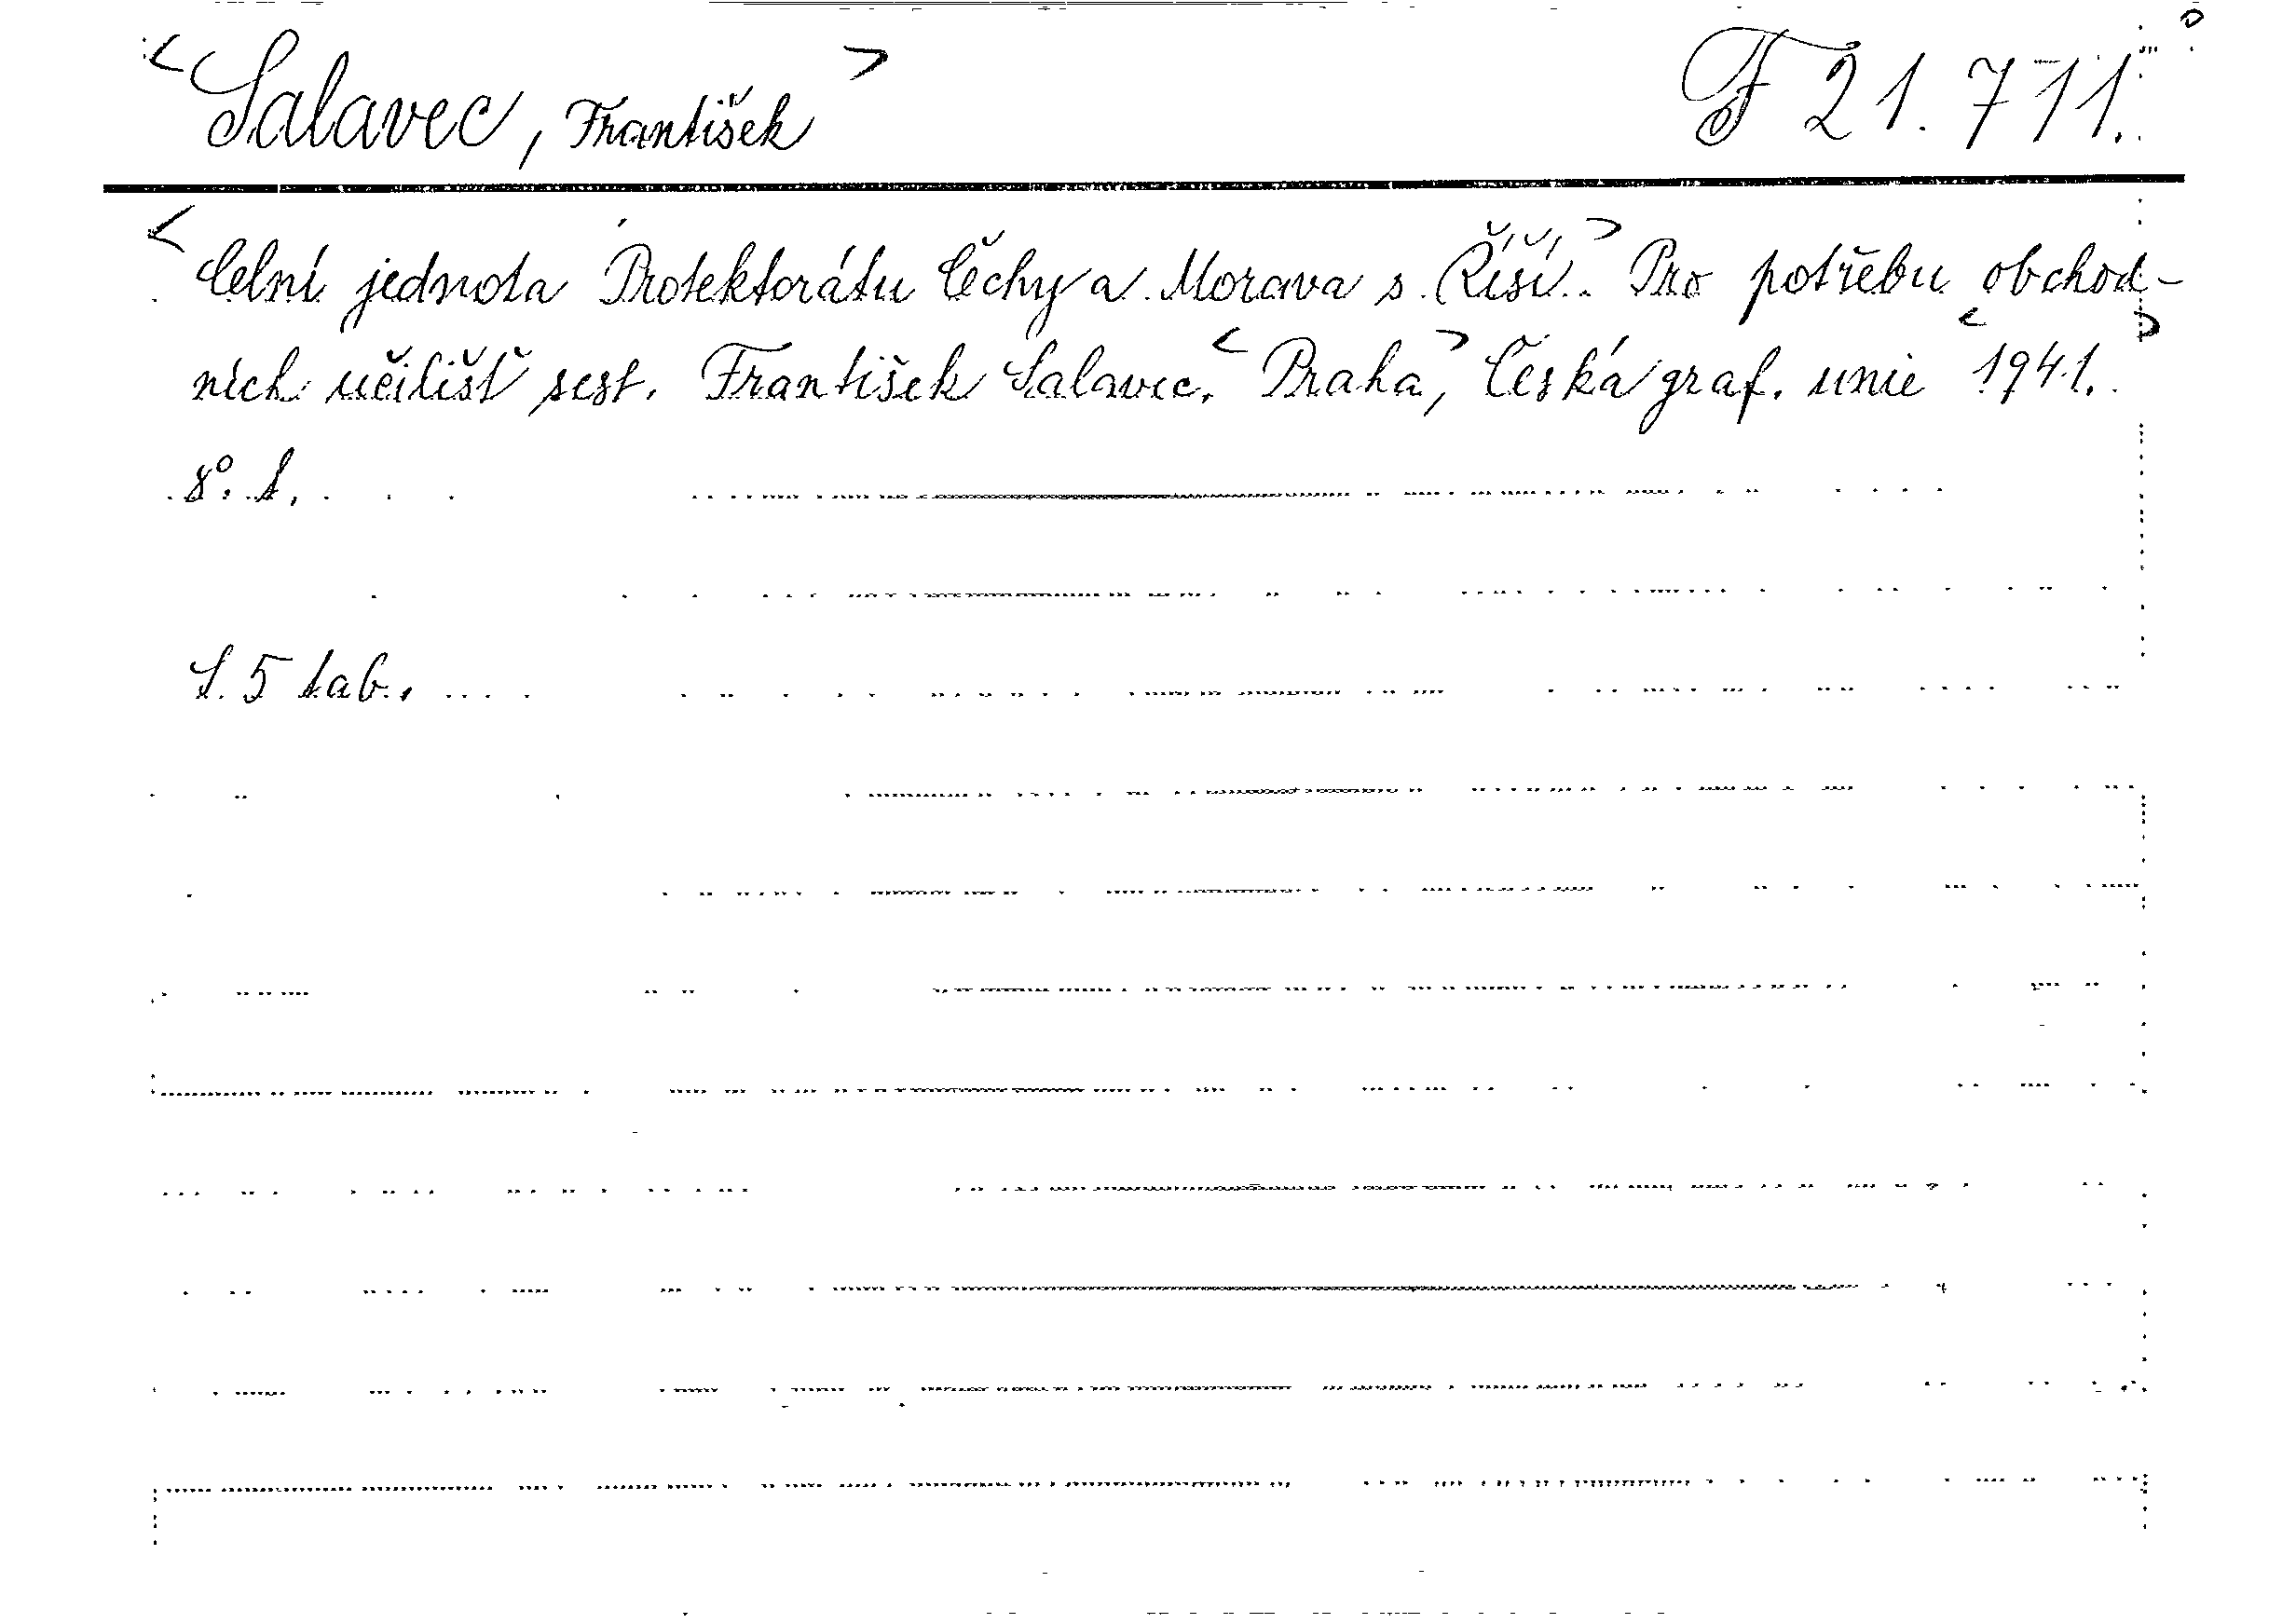 <Salavec, František> F 21.711.
<Celní jednota Protektorátu Čechy a Morava s Říší.> Pro potřebu obchod-
ních učilišť sest. František Salavec. <Praha>, Česká graf. unie <1941.>
8°. s.
S. 5 tab.